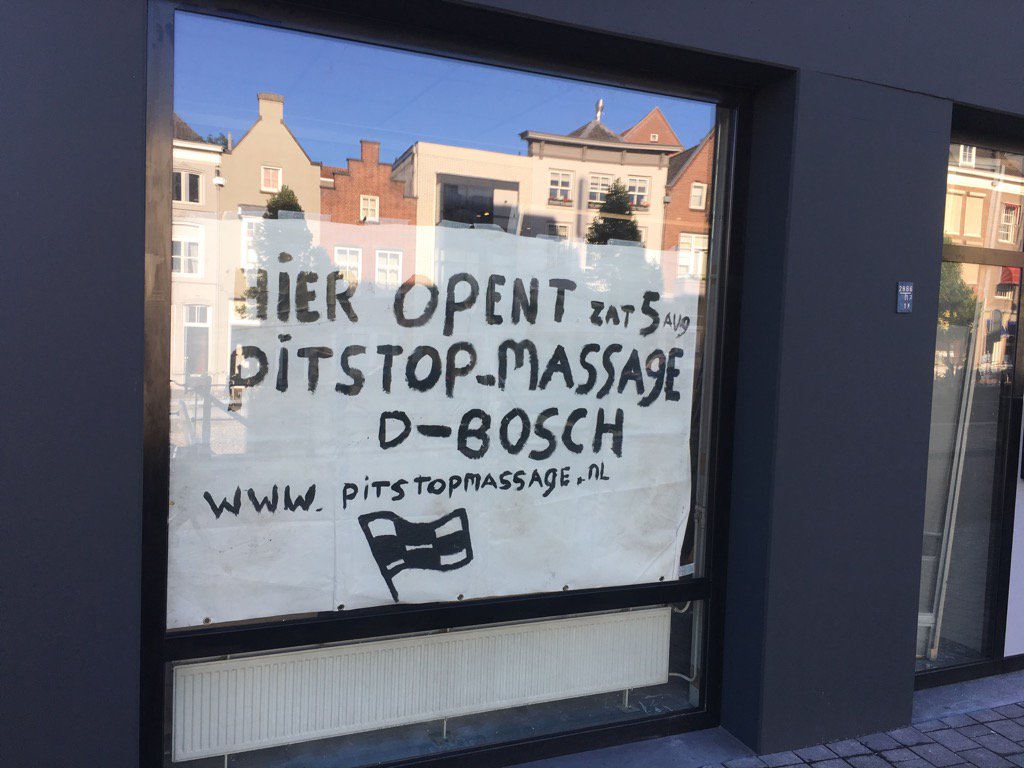 HiER OPENT ZAT 5 AUG
PiTSTOP-MASSAGE
D-BOSCH
WWW. PiTSTOPMASSAGE.NL